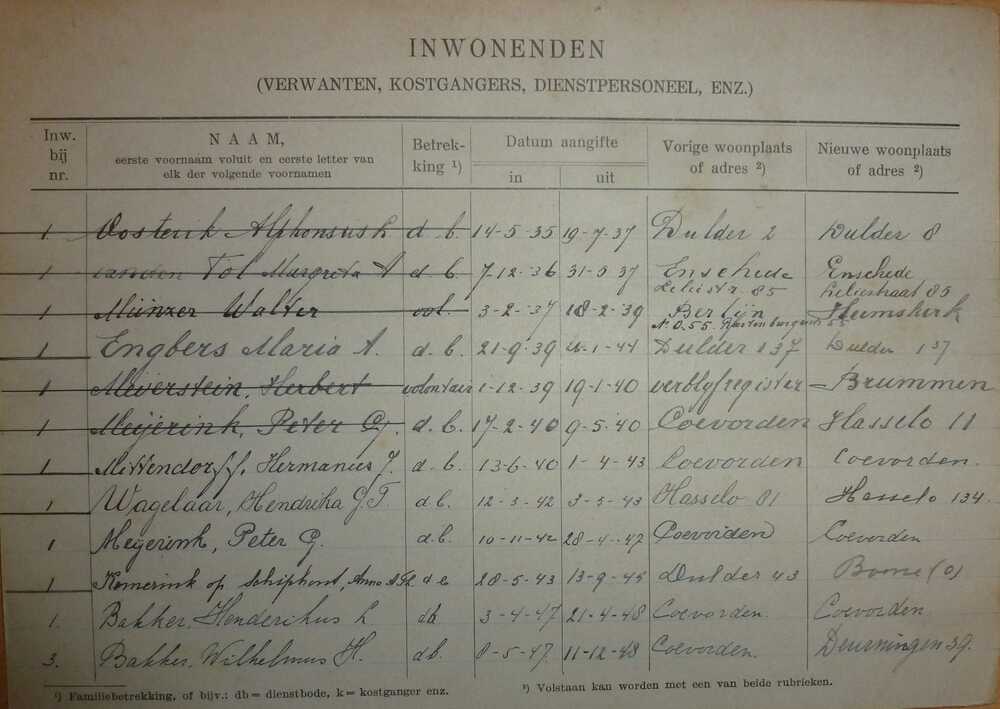 INWONENDEN
(VERWANTEN, KOSTGANGERS, DIENSTPERSONEEL, ENZ.)
Inw. bij nr. NAAM, eerste voornaam voluit en eerste letter van elk der volgende voornamen Betrekking ¹) Datum aangifte in uit Vorige woonplaats of adres ²) Nieuwe woonplaats of adres ²)
1 Oosterik Alphonsus h d. b. 14-5-35 19-7-37 Dulder 2 Dulder 8
1 van den Tol Margreta A d. b. 7-12-36 31-5-37 Enschede Leliestr. 85 Enschede Leliestraat 85
1 Münzer Walter vol. 3-2-37 18-2-39 Berlijn N.O.55. 55 Heemskerk
1 Engbers Maria A. d. b. 21-9-39 4-1-44 Dulder 137 Dulder 137
1 Meierstein, Herbert volontair 1-12-39 19-1-40 verblyfregister Brummen
1 Meijerink, Peter G. d. b. 17-2-40 9-5-40 Coevorden Hasselo 11
1 Mittendorff, Hermanus J. d. b. 13-6-40 1-4-43 Coevorden Coevorden.
1 Wagelaar, Hendrika G. T. d. b. 12-3-42 3-5-43 Hasselo 81 Hasselo 134.
1 Meijerink, Peter G. d. b. 10-11-42 28-4-47 Coevorden Coevorden
1 Kamerink op Schiphorst, Anna A. Th. d e 28-5-43 13-9-45 Dulder 43 Borne (O)
1. Bakker, Henderikus h db 3-4-47 21-4-48 Coevorden. Coevorden
3. Bakker, Wilhelmus H. db. 8-5-47 11-12-48 Coevorden. Deurningen 39.
¹) Familiebetrekking, of bijv.: db = dienstbode, k = kostganger enz. ²) Volstaan kan worden met een van beide rubrieken.